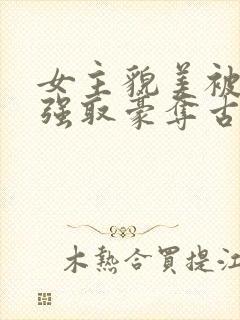 女主貌美被
强取豪夺古
木熱合買提江